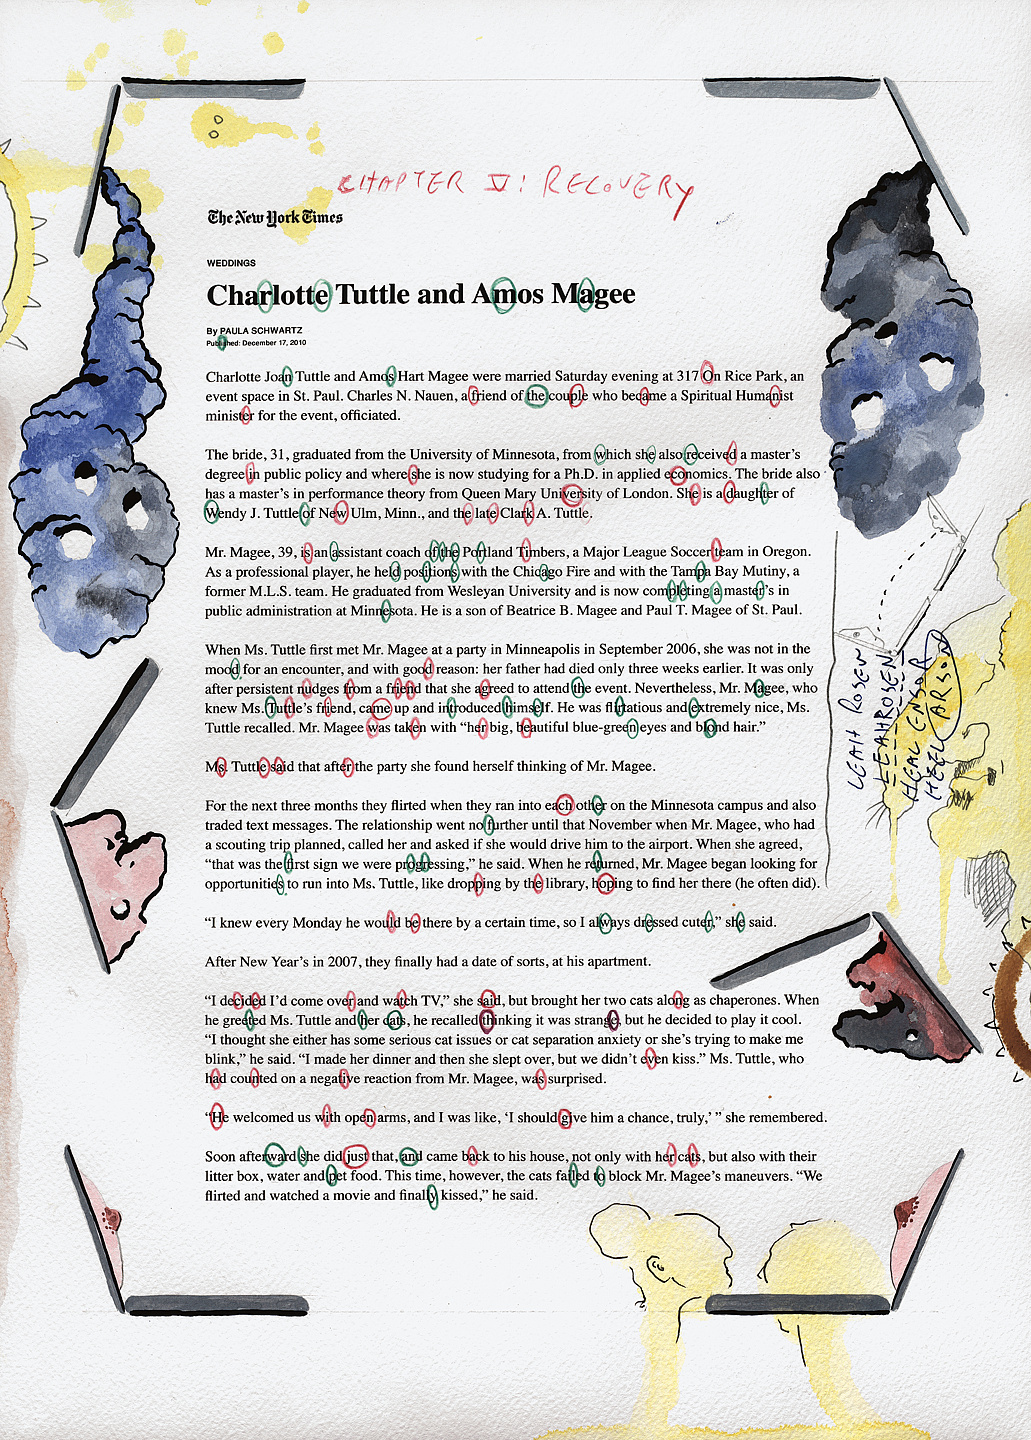 CHAPTER V: RECOVERY
The New York Times
WEDDINGS
Charlotte Tuttle and Amos Magee
By PAULA SCHWARTZ
Published: December 17, 2010
Charlotte Joan Tuttle and Amos Hart Magee were married Saturday evening at 317 On Rice Park, an
event space in St. Paul. Charles N. Nauen, a friend of the couple who became a Spiritual Humanist
minister for the event, officiated.
The bride, 31, graduated from the University of Minnesota, from which she also received a master's
degree in public policy and where she is now studying for a Ph.D. in applied economics. The bride also
has a master's in performance theory from Queen Mary University of London. She is a daughter of
Wendy J. Tuttle of New Ulm, Minn., and the late Clark A. Tuttle.
Mr. Magee, 39, is an assistant coach of the Portland Timbers, a Major League Soccer team in Oregon.
As a professional player, he held positions with the Chicago Fire and with the Tampa Bay Mutiny, a
former M.L.S. team. He graduated from Wesleyan University and is now completing a master's in
public administration at Minnesota. He is a son of Beatrice B. Magee and Paul T. Magee of St. Paul.
When Ms. Tuttle first met Mr. Magee at a party in Minneapolis in September 2006, she was not in the
mood for an encounter, and with good reason: her father had died only three weeks earlier. It was only
after persistent nudges from a friend that she agreed to attend the event. Nevertheless, Mr. Magee, who
knew Ms. Tuttle's friend, came up and introduced himself. He was flirtatious and extremely nice, Ms.
Tuttle recalled. Mr. Magee was taken with “her big, beautiful blue-green eyes and blond hair.”
Ms. Tuttle said that after the party she found herself thinking of Mr. Magee.
For the next three months they flirted when they ran into each other on the Minnesota campus and also
traded text messages. The relationship went no further until that November when Mr. Magee, who had
a scouting trip planned, called her and asked if she would drive him to the airport. When she agreed,
“that was the first sign we were progressing,” he said. When he returned, Mr. Magee began looking for
opportunities to run into Ms. Tuttle, like dropping by the library, hoping to find her there (he often did).
“I knew every Monday he would be there by a certain time, so I always dressed cuter,” she said.
After New Year's in 2007, they finally had a date of sorts, at his apartment.
“I decided I'd come over and watch TV,” she said, but brought her two cats along as chaperones. When
he greeted Ms. Tuttle and her cats, he recalled thinking it was strange, but he decided to play it cool.
“I thought she either has some serious cat issues or cat separation anxiety or she's trying to make me
blink,” he said. “I made her dinner and then she slept over, but we didn't even kiss.” Ms. Tuttle, who
had counted on a negative reaction from Mr. Magee, was surprised.
“He welcomed us with open arms, and I was like, ‘I should give him a chance, truly,’ ” she remembered.
Soon afterward she did just that, and came back to his house, not only with her cats, but also with their
litter box, water and pet food. This time, however, the cats failed to block Mr. Magee's maneuvers. “We
flirted and watched a movie and finally kissed,” he said.
LEAH ROSEN
LEAHROSEN
HEAL ENSOR
HEEL ARSON